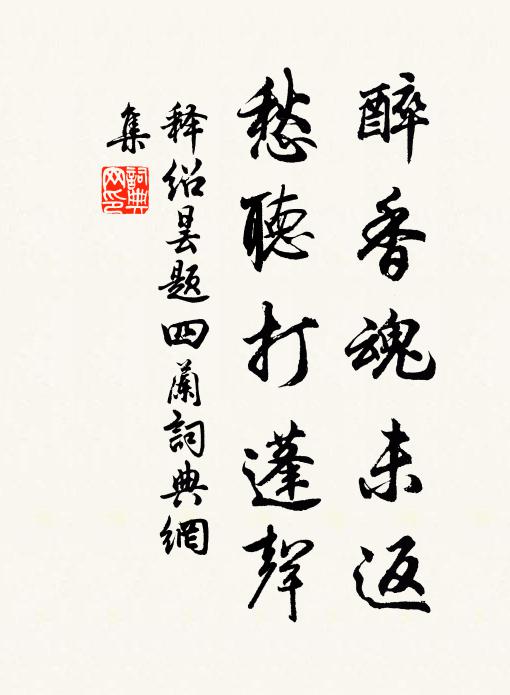 醉香魂未返
愁聽打蓬聲
释绍昙题四蘭詞典網
集
詞典網印